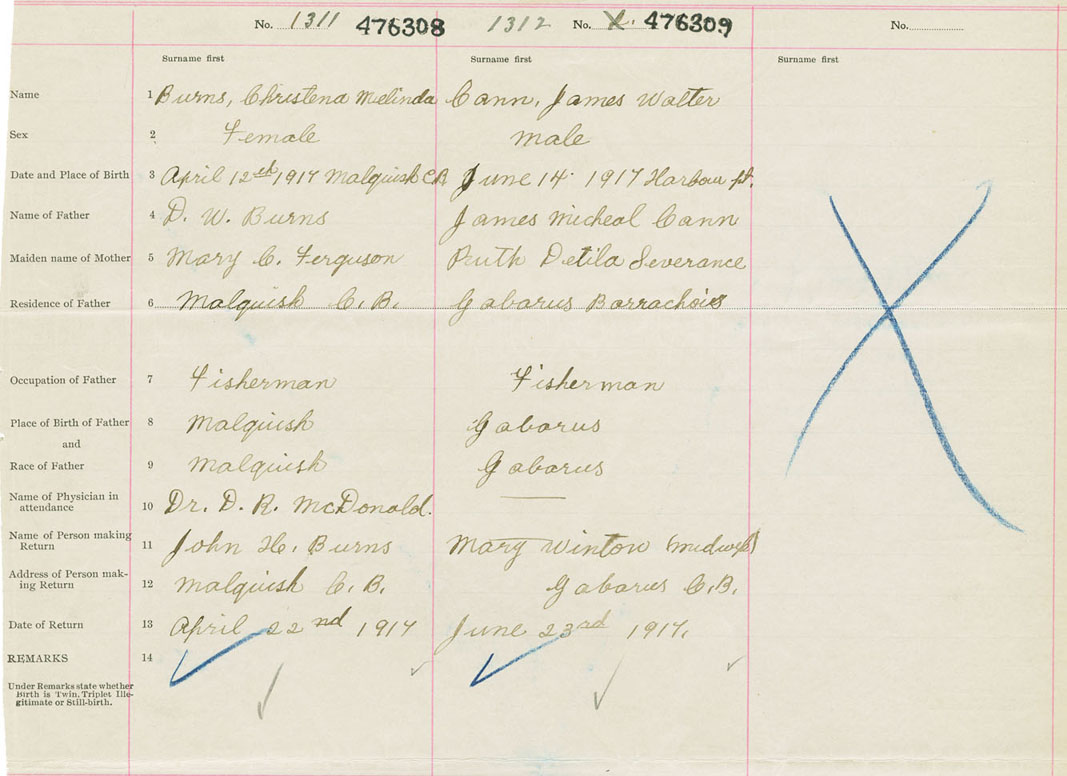 No. 1311 476308 1312 No. 476309 No.
Surname first Surname first Surname first
Name 1 Burns, Christena Melinda Cann, James Walter
Sex 2 Female Male
Date and Place of Birth 3 April 12th 1917 Malquish CB June 14 1917 Harbour pt.
Name of Father 4 D. W. Burns James Micheal Cann
Maiden name of Mother 5 Mary C. Ferguson Ruth Detila Severance
Residence of Father 6 Malquish C. B. Gabarus Barrachois
Occupation of Father 7 Fisherman Fisherman
Place of Birth of Father 8 Malquish Gabarus
and
Race of Father 9 Malquish Gabarus
Name of Physician in
attendance 10 Dr. D. R. McDonald.
Name of Person making
Return 11 John H. Burns Mary Winton (midwife)
Address of Person mak-
ing Return 12 Malquish C. B. Gabarus C.B.
Date of Return 13 April 22nd 1917 June 23rd 1917.
REMARKS 14
Under Remarks state whether
Birth is Twin, Triplet Ille-
gitimate or Still-birth.